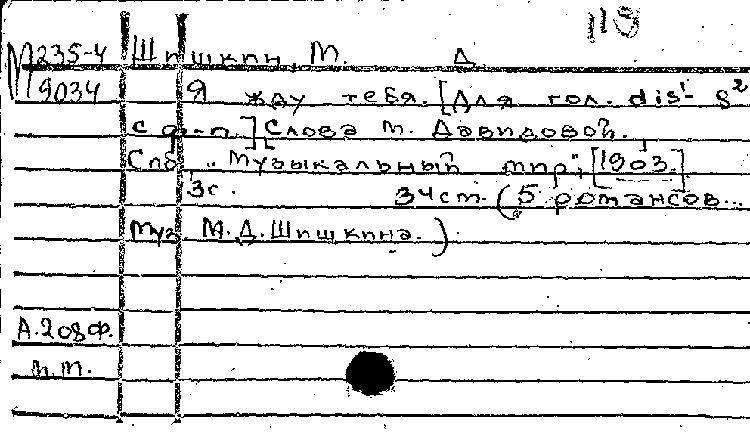 119
М235-4 Шишкин, М. Д.
М9034 Я жду тебя. [Для гол. dis¹- g²
с ф-п.] Слова М. Давидовой.
Спб, "Музыкальный мир", [1903.]
3с. 34 см. (5 романсов...
Муз. М.Д. Шишкина.)
А.208ф.
п.т.